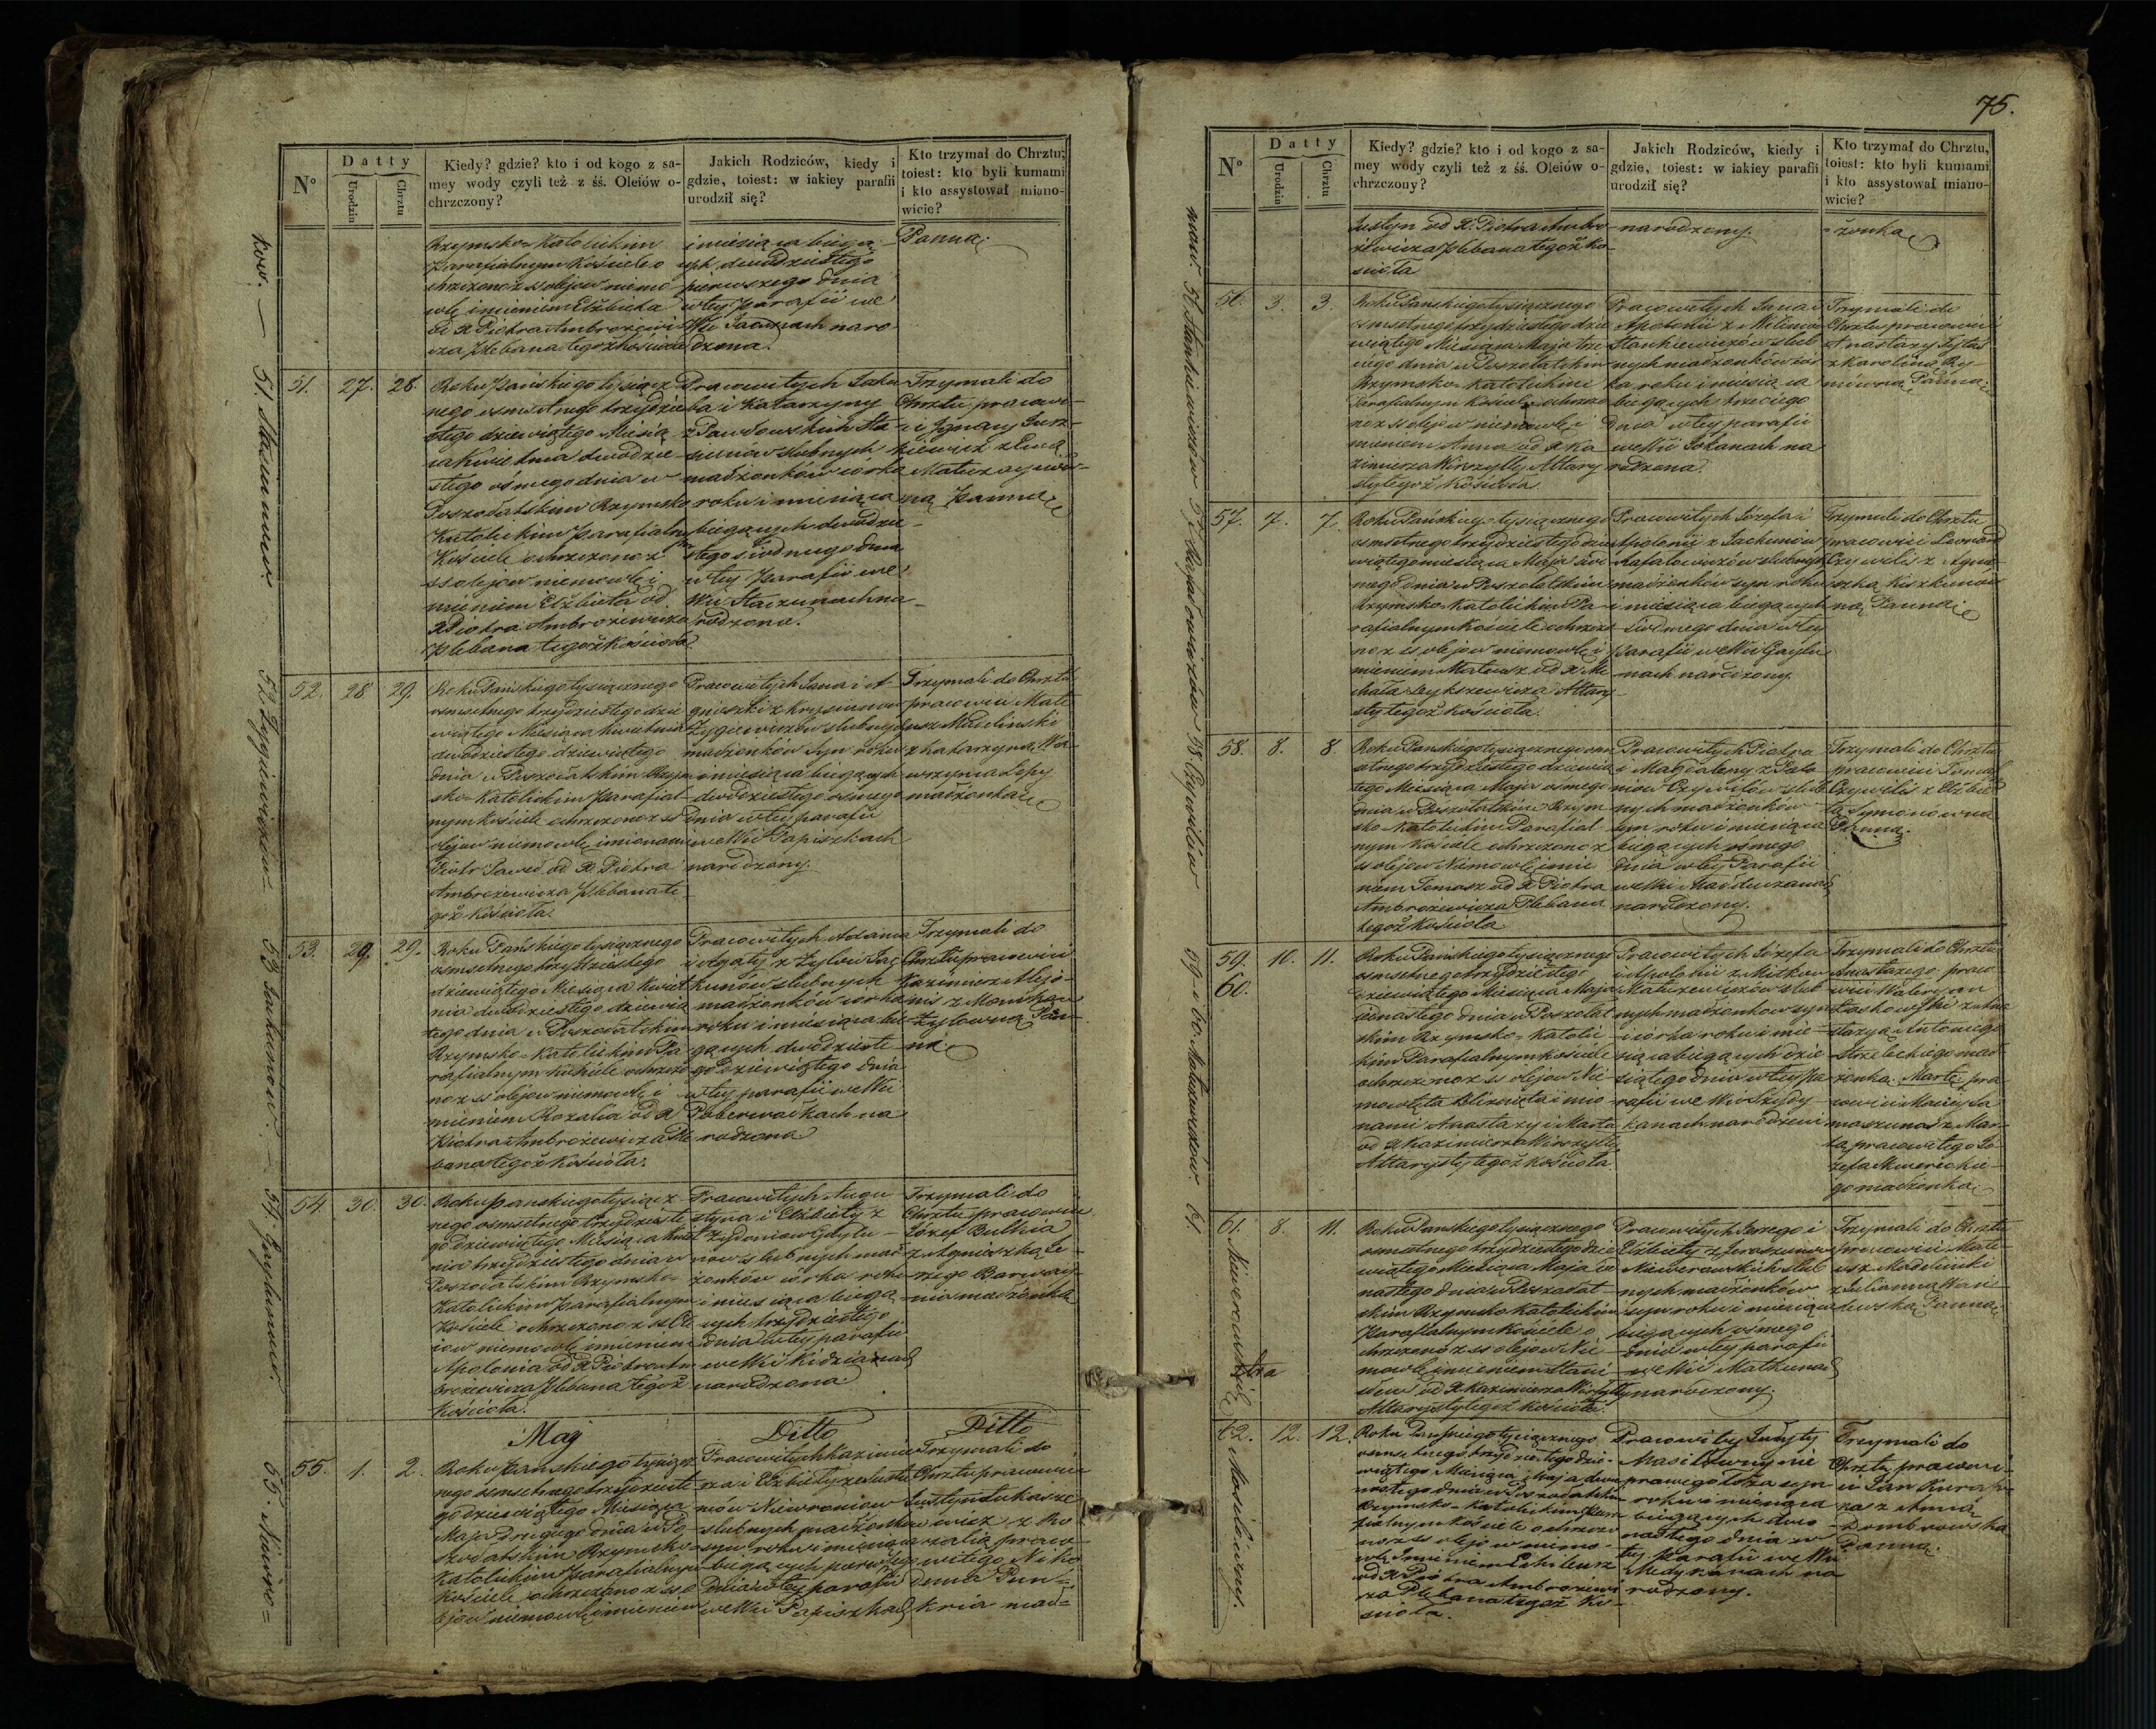 75.
N°
Datty
Urodzin
Chrztu
Kiedy? gdzie? kto i od kogo z sa-
mey wody czyli też z śś. Oleiów o-
chrzczony?
Jakich Rodziców, kiedy i
gdzie, toiest: w iakiey parafii
urodził się?
Kto trzymał do Chrztu,
toiest: kto byli kumami
i kto assystował miano-
wicie?
Rzymsko-Katolickim
Parafialnym Kościele o
chrzczono z ss olejow niemo
wlę imieniem Elżbieta
od X Piotra Ambrożewi
cza Plebana tegoż Kościoła
i miesiąca biegą
cych dwudziestego
pierwszego dnia
w tey parafii we
Wsi naro
dzona.
Panną.
51.
27.
28.
Roku Pańskiego tysiącz
nego osmsetnego trzydzie
stego dziewiątego Miesią
ca Kwietnia dwudzie
stego ósmego dnia w
Poszołatskim Rzymsko
Katolickim Parafialnym
Kościele ochrzczono z
ss olejow niemowlę i
mieniem Elżbieta od
X Piotra Ambrożewicza
Plebana tegoż Kościoła
Pracowitych Jaku
ba i Katarzyny
z Pawłowskich Sta
sunow ślubnych
małżonków corka
roku i miesiąca
biegących dwudzie
stego siodmego dnia
w tey Parafii we
Wsi Staczunach na
rodzona.
Trzymali do
Chrztu pracowi
ci Ignacy Jusz
kiewicz z Ewą
Matuzaywow
ną Panną.
52.
28
29.
Roku Pańskiego tysiącznego
osmsetnego trzydziestego dzie
wiątego Miesiąca Kwietnia
dwudziestego dziewiątego
dnia w Poszołatskim Rzym
sko-Katolickim Parafial
nym Kościele ochrzczono z ss
olejow niemowlę imionami
Piotr Paweł od X Piotra
Ambrożewicza Plebana te
goż Kościoła.
Pracowitych Jana i A
gnieszki z Krysiunow
Zygiewiczów ślubnych
małżonków Syn roku
i miesiąca biegących
dwudziestego osmego
dnia w tey parafii
we Wsi Papiszkach
narodzony.
Trzymali do Chrztu
pracowici Mate
usz Madelinski
z Katarzyną Wa
wrzynca Lepy
małżonką
53.
29.
29.
Roku Pańskiego tysiącznego
osmsetnego trzydziestego
dziewiątego Miesiąca Kwiet
nia dwudziestego dziewią
tego dnia w Poszołatskim
Rzymsko-Katolickim Pa
rafialnym Kościele ochrzczo
no z ss olejow niemowlę i
mieniem Rozalia od X
Piotra Ambrożewicza Ple
bana tegoż Kościoła.
Pracowitych Adama
i Agaty z Żyłow Ja
kunów ślubnych
małżonków corka
roku i miesiąca bie
gących dwudzieste
go dziewiątego dnia
w tey parafii we Wsi
Poberwackach na
rodzona
Trzymali do
Chrztu pracowici
Kazimierz Alejó
nis z Moniką
Żyłowną Pan
ną
54.
30.
30.
Roku Pańskiego tysiącz
nego osmsetnego trzydzieste
go dziewiątego Miesiąca Kwiet
nia trzydziestego dnia w
Poszołatskim Rzymsko-
Katolickim Parafialnym
Kościele ochrzczono z ss Ole
iow niemowlę imieniem
Apolonia od X Piotra Am
brożewicza Plebana tegoż
Kościoła.
Pracowitych Augu
styna i Elżbiety z
Żydaniow Gaydu
now ślubnych mał
żonków corka roku
i miesiąca biegą
cych trzydziestego
dnia w tey parafii
we Wsi Kidzianach
narodzona.
Trzymali do
Chrztu pracowici
Józef Butkia
z Agnieszką Je
rzego Barway
nia małżonką
Maj
Ditto
Ditto
55.
1.
2.
Roku Pańskiego tysiącz
nego osmsetnego trzydzieste
go dziewiątego Miesiąca
Maja drugiego dnia w Po
szołatskim Rzymsko
Katolickim Parafialnym
Kościele ochrzczono z ss o
lejow niemowlę imieniem
Pracowitych Kazimie
rza i Elżbiety
Niewroniow
ślubnych małżonków
syn roku i miesiąca
biegących pierwszego
dnia w tey parafii
we Wsi Papiszkach
Trzymali do
Chrztu pracowici
Justyn Łukasze
wicz z Ro
zalią praco
witego Niko
dema Pun
kria mał=
kow. — 51. Stasunow. 52. Zygiewiczow. 53 Jakunow. — 54. Gaydunow 55. Niewro=
N°
Datty
Urodzin
Chrztu
Kiedy? gdzie? kto i od kogo z sa-
mey wody czyli też z śś. Oleiów o-
chrzczony?
Jakich Rodziców, kiedy i
gdzie, toiest: w iakiey parafii
urodził się?
Kto trzymał do Chrztu,
toiest: kto byli kumami
i kto assystował miano-
wicie?
Justyn od X. Piotra Ambro
żewicza Plebana tegoż Ko
ścioła
narodzony.
żonką
56.
3.
3.
Roku Pańskiego tysiącznego
osmsetnego trzydziestego dzie
wiątego Miesiąca Maja trze
ciego dnia w Poszołatskim
Rzymsko-Katolickim
Parafialnym Kościele ochrzczo
no z ss olejow niemowlę i
mieniem Anna od X Ka
zimierza Wirszyłły Altary
sty tegoż Kościoła
Pracowitych Jana i
Apolonii z
Stankiewiczów ślub
nych małżonków cór
ka roku i miesiąca
biegących trzeciego
dnia w tey parafii
we Wsi Sokanach na
rodzona.
Trzymali do
Chrztu pracowici
Anastazy Żyłaś
z Karoliną Ry
mówną Panną
57.
7.
7
Roku Pańskiego tysiącznego
osmsetnego trzydziestego dzie
wiątego miesiąca Maja siod
mego dnia w Poszołatskim
Rzymsko-Katolickim Pa
rafialnym Kościele ochrzczo
no z ss olejow niemowlę i
mieniem Mateusz od X Mi
chała Altary
sty tegoż Kościoła.
Pracowitych Józefa i
Apolonii z Jachimow
Rafałowiczów ślubnych
małżonków syn roku
i miesiąca biegących
siodmego dnia w tey
Parafii we Wsi Gaydu
nach narodzony.
Trzymali do Chrztu
pracowici Leonard
Czywilis z Agnie
szką Kiszkunow
ną Panną
58.
8.
8
Roku Pańskiego tysiącznego osm
setnego trzydziestego dziewią
tego Miesiąca Maja osmego
dnia w Poszołatskim Rzym
sko-Katolickim Parafial
nym Kościele ochrzczono z
ss olejow Niemowlę imie
niem Tomasz od X Piotra
Ambrożewicza Plebana
tegoż Kościoła
Pracowitych Piotra
i Magdaleny z
Czywilów ślub
nych małżonków
syn roku i miesiąca
biegących osmego
dnia w tey Parafii
we Wsi
narodzony.
Trzymali do Chrztu
pracowici Tomasz
Czywilis z Elżbie
tą Symonówną
Panną.
59.
60.
10.
11.
Roku Pańskiego tysiącznego
osmsetnego trzydziestego
dziewiątego Miesiąca Maja
iednastego dnia w Poszołat
skim Rzymsko-Katolic
kim Parafialnym Kościele
ochrzczono z ss olejow Nie
mowlęta Bliźnięta imio
nami Anastazy i Marta
od X Kazimierza Wirszyłły
Altarysty tegoż Kościoła.
Pracowitych Józefa
i Apolonii z Mitkow
Matuzewiczow ślub
nych małżonków syn
i córka roku i mie
siąca biegących dzie
siątego dnia w tey Pa
rafii we Wsi Szydy
kanach narodzeni
Trzymali do Chrztu
Anastazego praco
wici Waleryan
Lachowski z Ana
stazyą Antoniego
Strzeleckiego mał
żonką. Martę pra
cowici Maciey Ja
maszunas z Mar
tą pracowitego Jó
zefa Niewierockie
go małżonką.
61.
8.
11.
Roku Pańskiego tysiącznego
osmsetnego trzydziestego dzie
wiątego Miesiąca Maja ie
nastego dnia w Poszołat
skim Rzymsko Katolickim
Parafialnym Kościele o
chrzczono z ss olejow Nie
mowlę imieniem Stani
sław od X Kazimierza Wirszyłły
Altarysty tegoż Kościoła.
Pracowitych Jerzego i
Elżbiety z Jaroszunow
Niewierowskich ślub
nych małżonków
syn roku i miesiąca
biegących osmego
dnia w tey parafii
we Wsi Matkunach
narodzony.
Trzymali do Chrztu
pracowici Mate
usz Madelinski
z Julianną Wasi
lewską Panną
62.
12.
12.
Roku Pańskiego tysiącznego
osmsetnego trzydziestego dzie
wiątego Miesiąca Maja dwu
nastego dnia w Poszołatskim
Rzymsko-Katolickim Para
fialnym Kościele ochrzczo
no z ss olejow niemo
wlę Imieniem
od X Piotra Ambrożewi
cza Plebana tegoż Ko
ścioła.
Pracowitey Justyny
nie
prawego Łoża syn
roku i miesiąca
biegących dwu
nastego dnia w
tey Parafii we Wsi
Medynach na
rodzony.
Trzymali do
Chrztu pracowi
ci Jan Kura
z Anną
Dombrowską
Panną.
niow. 56 Stankiewiczow 57 Rafałowiczów 58 Czywilow 59. i 60. Matuzewiczów. 61.
Niewierowski
62